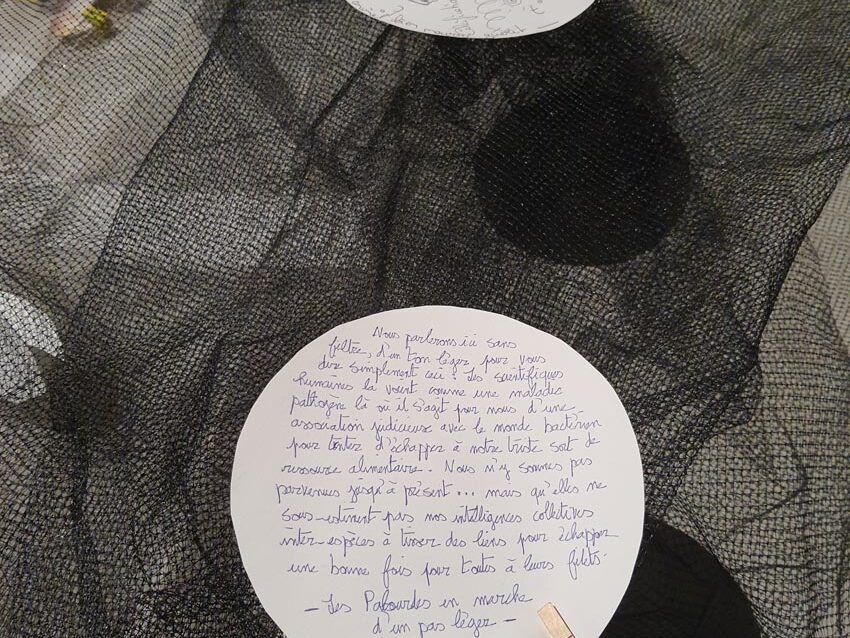 Nous parlerons ici sans
filtre, d'un ton léger pour vous
dire simplement ceci : Les scientifiques
humaines la voient comme une maladie
pathogène là où il s'agit pour nous d'une
association judicieuse avec le monde bactérien
pour tenter d'échapper à notre triste sort de
ressource alimentaire. Nous n'y sommes pas
parvenues jusqu'à présent... mais qu'elles ne
sous-estiment pas nos intelligences collectives
inter-espèces à tisser des liens pour échapper
une bonne fois pour toutes à leurs filets.
- Les Palourdes en marche
d'un pas léger -